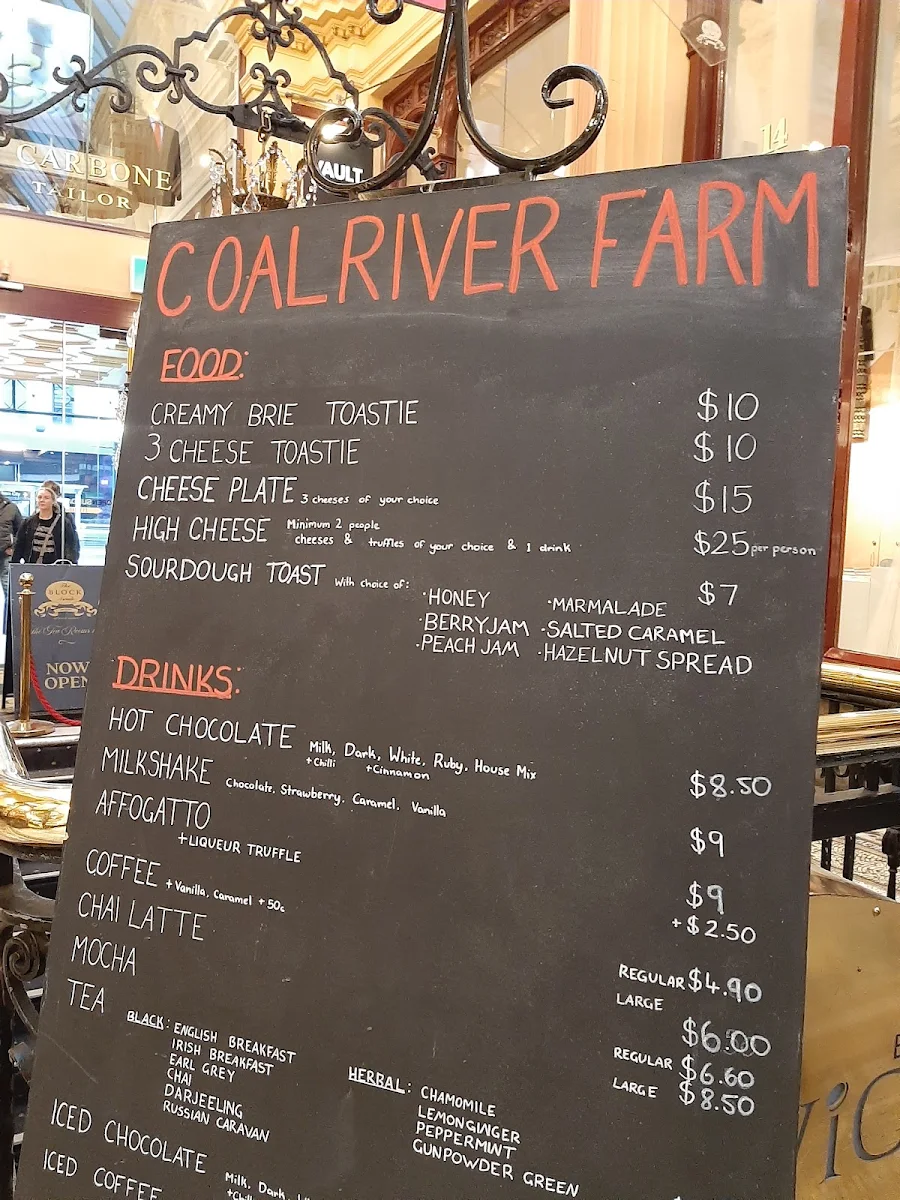 CARBONE
TAILOR
VAULT
14
COAL RIVER FARM
FOOD:
CREAMY BRIE TOASTIE $10
3 CHEESE TOASTIE $10
CHEESE PLATE 3 cheeses of your choice $15
HIGH CHEESE Minimum 2 people
cheeses & truffles of your choice & 1 drink $25 per person
SOURDOUGH TOAST With choice of: $7
·HONEY ·MARMALADE
·BERRY JAM ·SALTED CARAMEL
·PEACH JAM ·HAZELNUT SPREAD
DRINKS:
HOT CHOCOLATE Milk, Dark, White, Ruby, House Mix
+Chilli +Cinnamon $8.50
MILKSHAKE Chocolate, Strawberry, Caramel, Vanilla $9
AFFOGATTO $9
+LIQUEUR TRUFFLE +$2.50
COFFEE +Vanilla, Caramel +50c REGULAR $4.90
LARGE $6.00
CHAI LATTE REGULAR $6.60
MOCHA LARGE $8.50
TEA
BLACK: ENGLISH BREAKFAST
IRISH BREAKFAST
EARL GREY
CHAI
DARJEELING
RUSSIAN CARAVAN
HERBAL: CHAMOMILE
LEMONGINGER
PEPPERMINT
GUNPOWDER GREEN
ICED CHOCOLATE Milk, Dark,
ICED COFFEE
The
BLOCK
NOW
OPEN